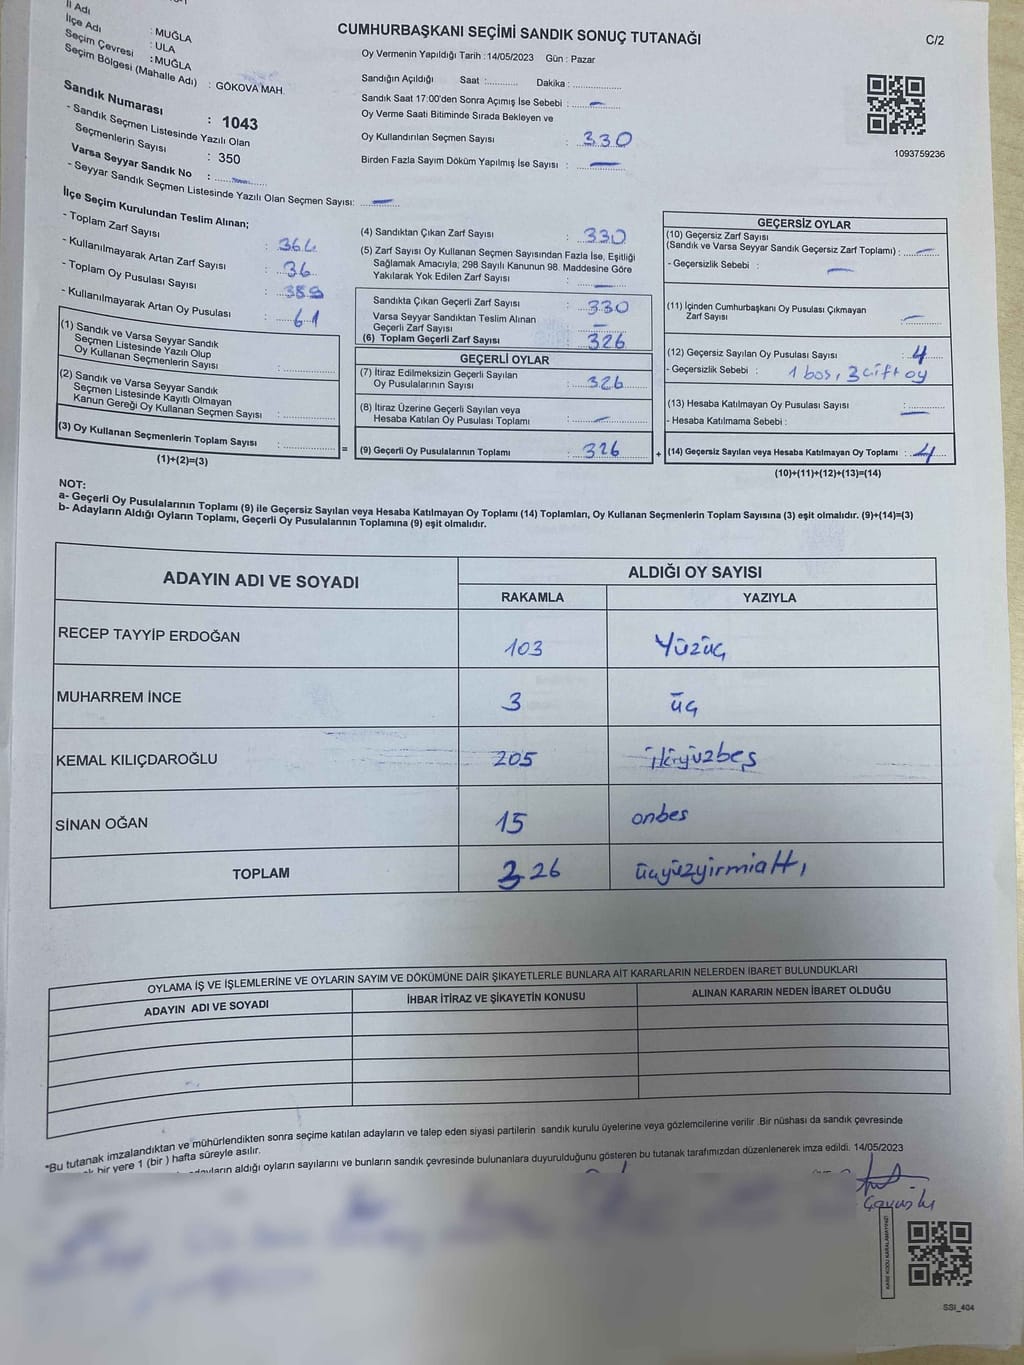 İl Adı : MUĞLA
İlçe Adı : ULA
Seçim Çevresi : MUĞLA
Seçim Bölgesi (Mahalle Adı) : GÖKOVA MAH.
Sandık Numarası : 1043
- Sandık Seçmen Listesinde Yazılı Olan
Seçmenlerin Sayısı : 350
Varsa Seyyar Sandık No : –
- Seyyar Sandık Seçmen Listesinde Yazılı Olan Seçmen Sayısı: –
CUMHURBAŞKANI SEÇİMİ SANDIK SONUÇ TUTANAĞI
C/2
Oy Vermenin Yapıldığı Tarih : 14/05/2023 Gün : Pazar
Sandığın Açıldığı Saat :........... Dakika : ..................
Sandık Saat 17:00'den Sonra Açımış İse Sebebi : –
Oy Verme Saati Bitiminde Sırada Bekleyen ve
Oy Kullandırılan Seçmen Sayısı : 330
Birden Fazla Sayım Döküm Yapılmış İse Sayısı : –
1093759236
İlçe Seçim Kurulundan Teslim Alınan;
- Toplam Zarf Sayısı :
- Kullanılmayarak Artan Zarf Sayısı : 36
- Toplam Oy Pusulası Sayısı :
- Kullanılmayarak Artan Oy Pusulası : 61
(1) Sandık ve Varsa Seyyar Sandık
Seçmen Listesinde Yazılı Olup
Oy Kullanan Seçmenlerin Sayısı : ..................
(2) Sandık ve Varsa Seyyar Sandık
Seçmen Listesinde Kayıtlı Olmayan
Kanun Gereği Oy Kullanan Seçmen Sayısı : ..................
(3) Oy Kullanan Seçmenlerin Toplam Sayısı : ..................
(1)+(2)=(3)
=
(4) Sandıktan Çıkan Zarf Sayısı : 330
(5) Zarf Sayısı Oy Kullanan Seçmen Sayısından Fazla İse, Eşitliği
Sağlamak Amacıyla; 298 Sayılı Kanunun 98. Maddesine Göre
Yakılarak Yok Edilen Zarf Sayısı : –
Sandıkta Çıkan Geçerli Zarf Sayısı : 330
Varsa Seyyar Sandıktan Teslim Alınan
Geçerli Zarf Sayısı : –
(6) Toplam Geçerli Zarf Sayısı : 326
GEÇERLİ OYLAR
(7) İtiraz Edilmeksizin Geçerli Sayılan
Oy Pusulalarının Sayısı : 326
(8) İtiraz Üzerine Geçerli Sayılan veya
Hesaba Katılan Oy Pusulası Toplamı : –
(9) Geçerli Oy Pusulalarının Toplamı : 326
+
GEÇERSİZ OYLAR
(10) Geçersiz Zarf Sayısı
(Sandık ve Varsa Seyyar Sandık Geçersiz Zarf Toplamı) : –
- Geçersizlik Sebebi : –
(11) İçinden Cumhurbaşkanı Oy Pusulası Çıkmayan
Zarf Sayısı : –
(12) Geçersiz Sayılan Oy Pusulası Sayısı : 4
- Geçersizlik Sebebi : 1 boş, 3 çift oy
(13) Hesaba Katılmayan Oy Pusulası Sayısı : –
- Hesaba Katılmama Sebebi :
(14) Geçersiz Sayılan veya Hesaba Katılmayan Oy Toplamı : 4
(10)+(11)+(12)+(13)=(14)
NOT:
a- Geçerli Oy Pusulalarının Toplamı (9) ile Geçersiz Sayılan veya Hesaba Katılmayan Oy Toplamı (14) Toplamları, Oy Kullanan Seçmenlerin Toplam Sayısına (3) eşit olmalıdır. (9)+(14)=(3)
b- Adayların Aldığı Oyların Toplamı, Geçerli Oy Pusulalarının Toplamına (9) eşit olmalıdır.
ADAYIN ADI VE SOYADI
ALDIĞI OY SAYISI
RAKAMLA YAZIYLA
RECEP TAYYİP ERDOĞAN 103 Yüzüç
MUHARREM İNCE 3 üç
KEMAL KILIÇDAROĞLU 205 ikiyüzbeş
SİNAN OĞAN 15 onbeş
TOPLAM 326 üçyüzyirmialtı
OYLAMA İŞ VE İŞLEMLERİNE VE OYLARIN SAYIM VE DÖKÜMÜNE DAİR ŞİKAYETLERLE BUNLARA AİT KARARLARIN NELERDEN İBARET BULUNDUKLARI
ADAYIN ADI VE SOYADI İHBAR İTİRAZ VE ŞİKAYETİN KONUSU ALINAN KARARIN NEDEN İBARET OLDUĞU
*Bu tutanak imzalandıktan ve mühürlendikten sonra seçime katılan adayların ve talep eden siyasi partilerin sandık kurulu üyelerine veya gözlemcilerine verilir .Bir nüshası da sandık çevresinde
bir yere 1 (bir ) hafta süreyle asılır.
aldığı oyların sayılarını ve bunların sandık çevresinde bulunanlara duyurulduğunu gösteren bu tutanak tarafımızdan düzenlenerek imza edildi. 14/05/2023
KARE KODU KARALAMAYINIZ!
SSI_404